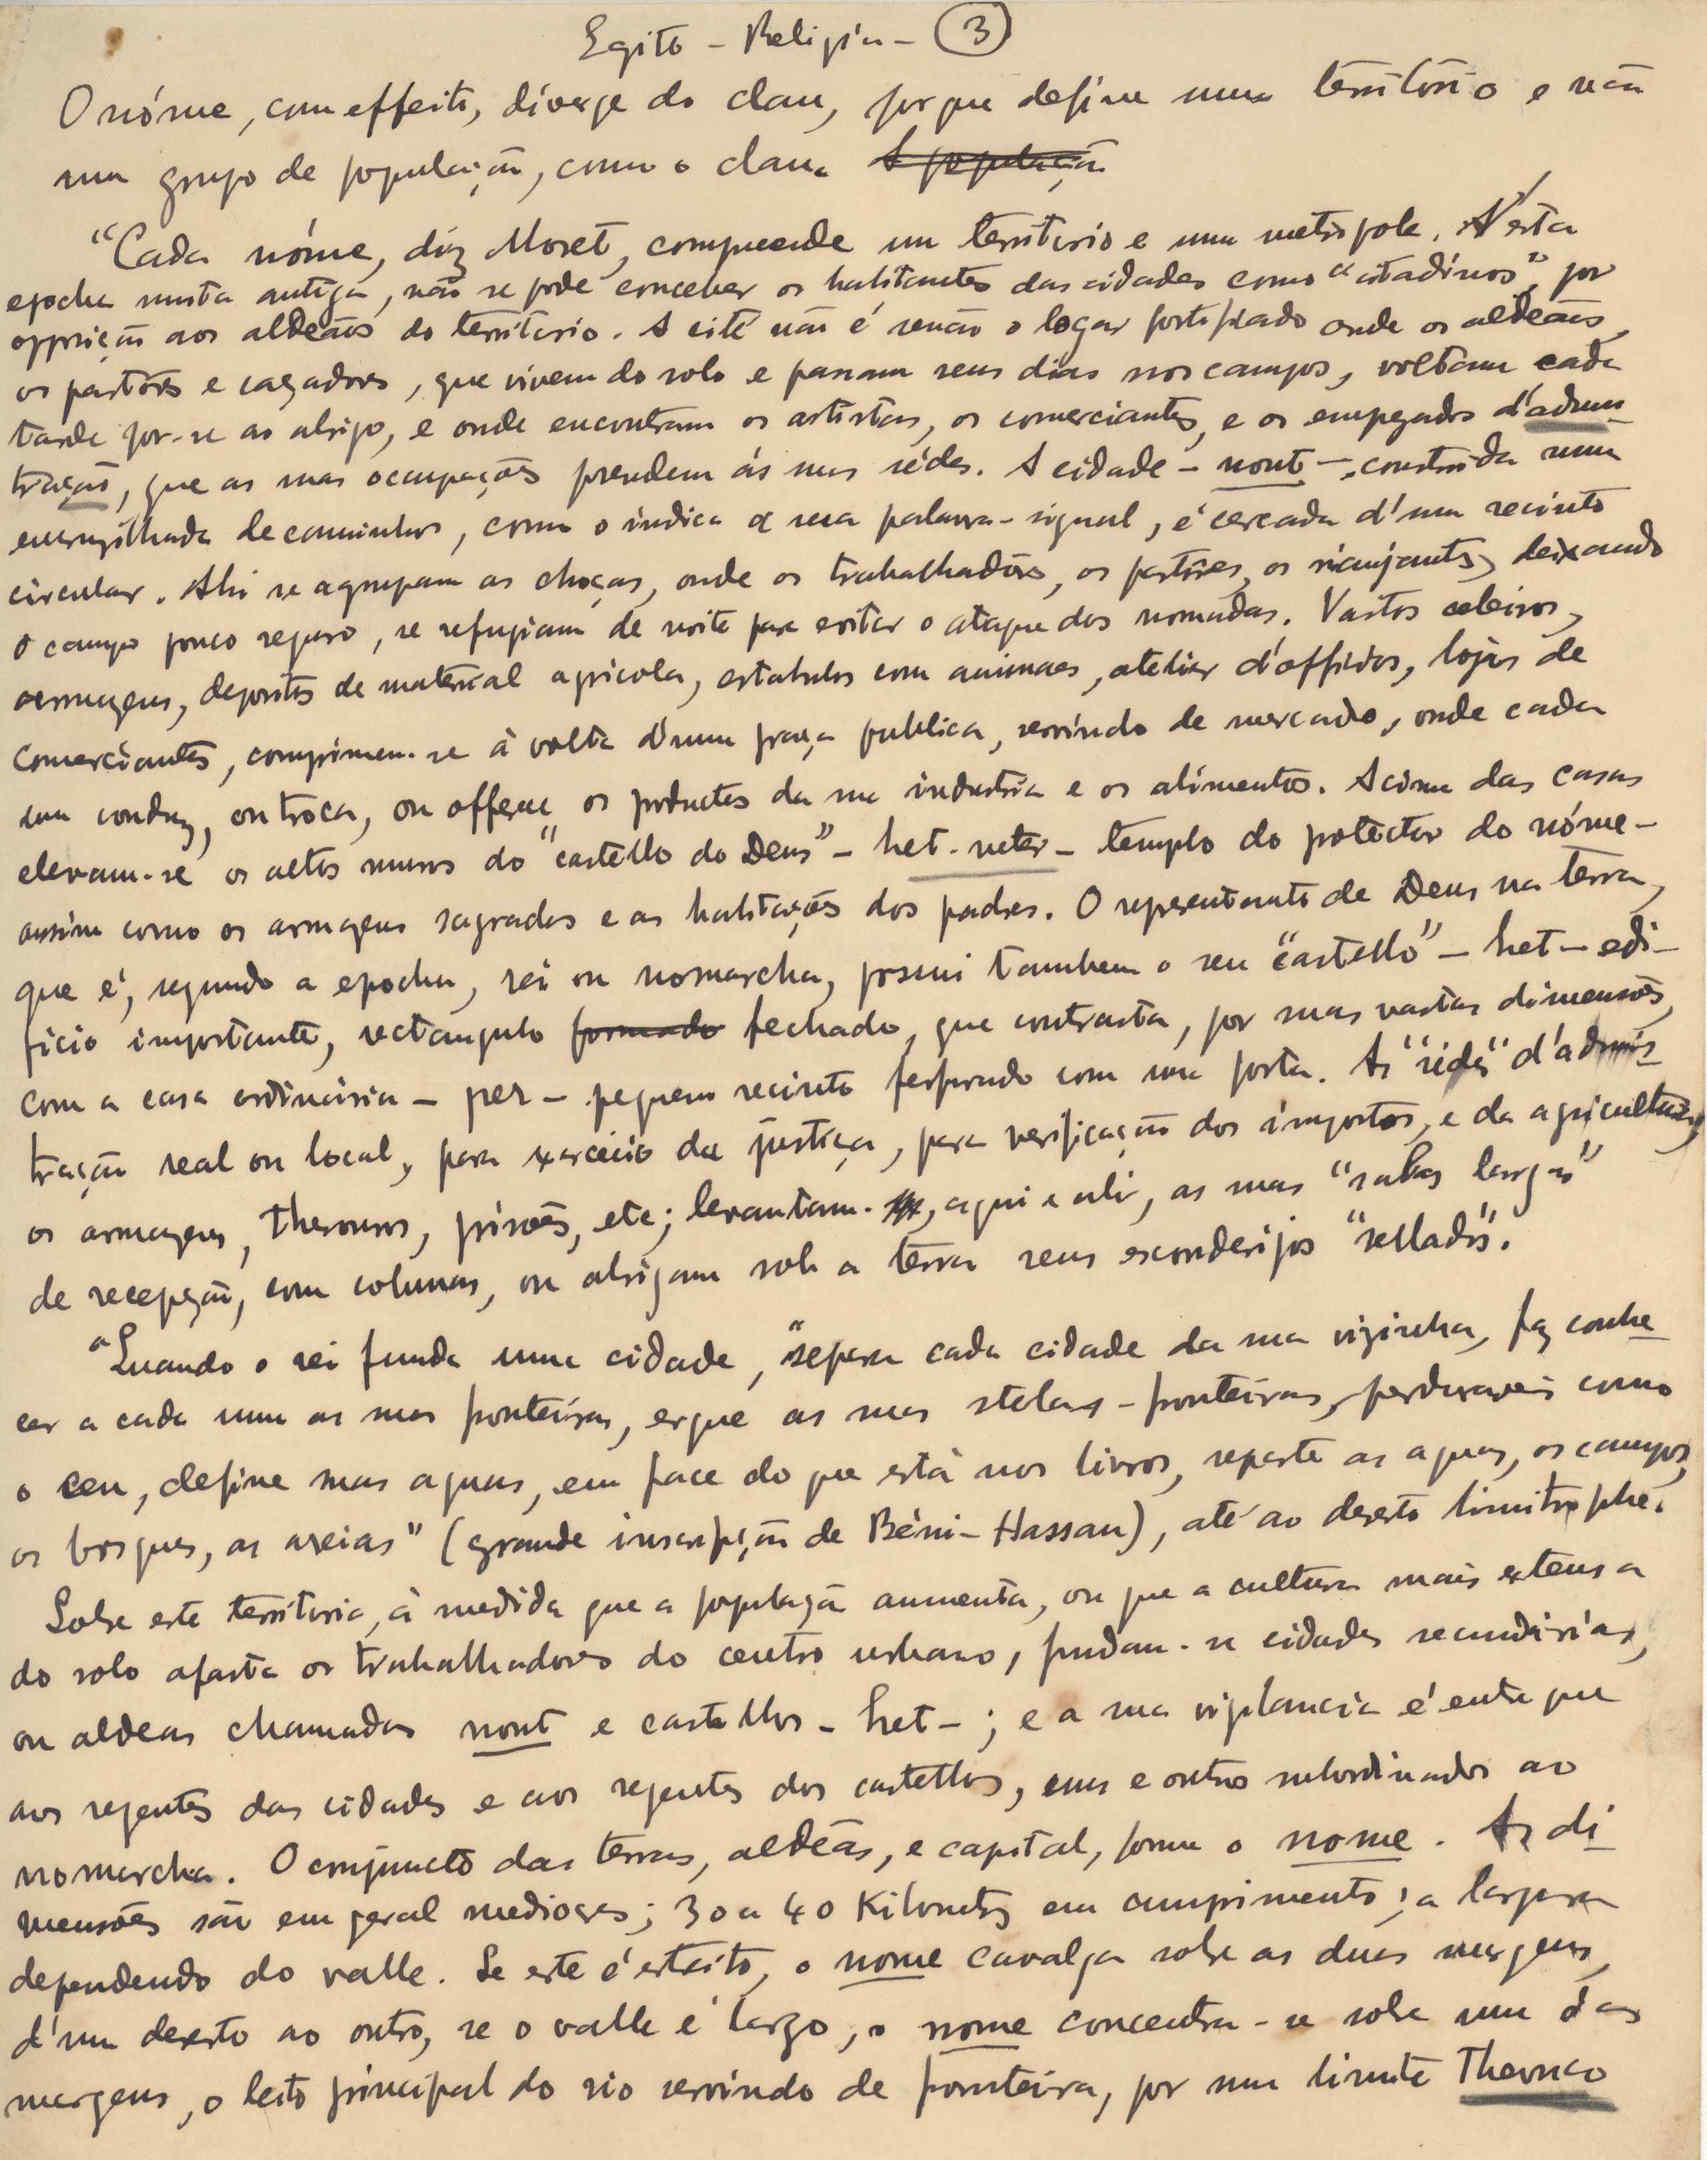 Egito - Religião - 3
O nóme, com effeito, diverge do clan, porque define um territorio e não
um grupo de população, como o clan. A população
"Cada nóme, diz Moret, compreende um territorio e uma metropole. N'esta
epocha muito antiga, não se pode conceber os habitantes das cidades como "citadinos", por
opposição aos aldeãos do territorio. A cité não é senão o logar fortificado onde os aldeãos,
os pastôres e caçadores, que vivem do solo e passam seus dias nos campos, voltam cada
tarde pôr-se ao abrigo, e onde encontram os artistas, os comerciantes, e os empregados d'adminis
tração, que as suas occupações prendem ás suas sédes. A cidade - nout -, construida numa
encruzilhada de caminhos, como o indica a sua palavra-signal, é cercada d'um recinto
circular. Ahi se agrupam as choças, onde os trabalhadôres, os pastôres, os viajantes, deixando
o campo pouco seguro, se refugiam de noite para evitar o ataque dos nomadas. Vastos celeiros,
armazens, depositos de material agricola, estabulos com animaes, atelier d'officios, lojas de
comerciantes, comprimem-se á volta d'uma praça publica, servindo de mercado, onde cada
um conduz, ou troca, ou offerece os productos da sua industria e os alimentos. Acima das casas
elevam-se os altos muros do "castello do Deus" - het-neter - templo do protector do nóme -
assim como os armazens sagrados e as habitações dos padres. O representante de Deus na terra,
que é, segundo a epocha, rei ou nomarcha, possui tambem o seu "castello" - het - edi-
ficio importante, rectangulo formado fechado, que contrasta, por suas vastas dimensões,
com a casa ordinaria - per - pequeno recinto perfurado com uma porta. As "sédes" d'adminis
tração real ou local, para exercicio da justiça, para verificação dos impostos, e da agricultura,
os armazens, thesouros, prisões, etc; levantam-se, aqui e ali, as suas "salas largas"
de recepção, com colunas, ou abrigam sob a terra seus esconderijos "sellados".
"Quando o rei funda uma cidade, "separa cada cidade da sua vizinha, faz conhe
cer a cada uma as suas fronteiras, ergue as suas stelas-fronteiras, perduraveis como
o ceu, define suas aguas, em face do que está nos livros, reparte as aguas, os campos,
os bosques, as areias" (grande inscripção de Béni-Hassan), até ao deserto limitrophe.
Sobre este territorio, á medida que a população aumenta, ou que a cultura mais extensa
do solo afasta os trabalhadores do centro urbano, fundam-se cidades secundárias,
ou aldeas chamadas nout e castellos - het -; e a sua vigilancia é entregue
aos regentes das cidades e aos regentes dos castellos, uns e outros subordinados ao
nomarcha. O conjuncto das terras, aldeãs, e capital, forma o nome. As di
mensões são em geral mediocres; 30 a 40 Kilometros em comprimento; a largura
dependendo do valle. Se este é estreito, o nome cavalga sobre as duas margens,
d'um deserto ao outro, se o valle é largo, o nome concentra-se sobre uma das
margens, o leito principal do rio servindo de fronteira, por um limite